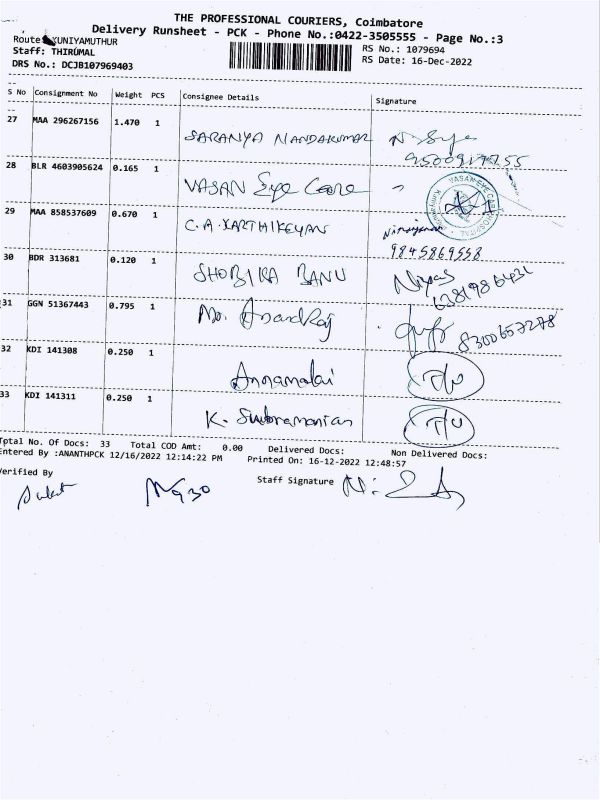 THE PROFESSIONAL COURIERS, Coimbatore
Delivery Runsheet - PCK - Phone No.:0422-3505555 - Page No.:3
Route: KUNIYAMUTHUR
RS No.: 1079694
Staff: THIRUMAL
RS Date: 16-Dec-2022
DRS No.: DCJB107969403
S No Consignment No Weight PCS Consignee Details Signature
27 MAA 296267156 1.470 1
SARANYA NANDAKUMAR
28 BLR 4603905624 0.165 1
VASAN Eye Care
VASAN EYE CARE HOSPITAL
29 MAA 858537609 0.670 1
C.A. KARTHIKEYAN
9845869558
30 BDR 313681 0.120 1
SHOBIKA BANU
Niyas
6381986431
31 GGN 51367443 0.795 1
Mr. Anandraj
8300657278
32 KDI 141308 0.250 1
Annamalai
33 KDI 141311 0.250 1
K. Subramanian
Total No. Of Docs: 33 Total COD Amt: 0.00 Delivered Docs: Non Delivered Docs:
Entered By :ANANTHPCK 12/16/2022 12:14:22 PM Printed On: 16-12-2022 12:48:57
Verified By
Staff Signature